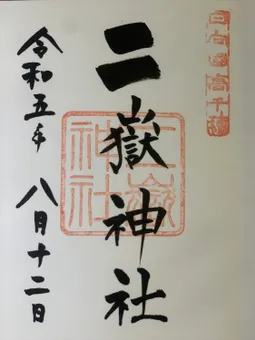 日向國高千穂
二嶽神社
令和五年 八月十二日
二嶽神社